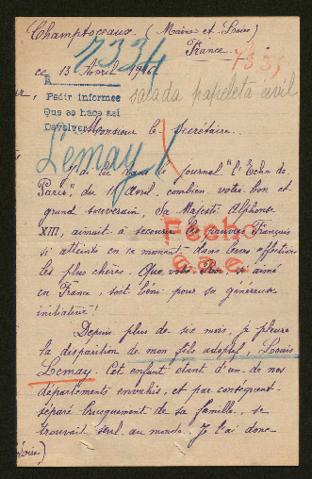 Champtoceaux (Maine et Loire)
France.
733
7334
ce 13 Avril 1916
Pedir informes
Que se hace así
Devolver
sacada papeleta civil
Monsieur le Secrétaire.
Lemay
J'ai lu dans le journal "l'Echo de
Paris", du 11 Avril, combien votre bon et
grand souverain, Sa Majesté Alphonse
XIII, aimait à secourir les pauvres Français
si atteints en ce moment dans leurs affections
les plus chères. Que votre Roi, si aimé
en France, soit béni pour sa généreuse
initiative!
Fecho
Depuis plus de six mois, je pleure
la disparition de mon fils adoptif, Louis
Lemay. Cet enfant étant d'un de nos
départements envahis, et par conséquent
séparé brusquement de sa famille, se
trouvait seul au monde. Je l'ai donc